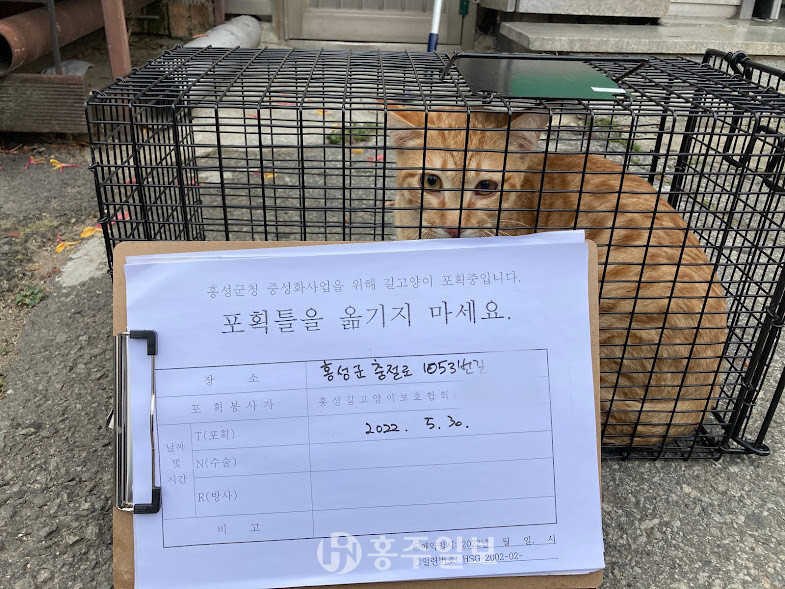 홍성군청 중성화사업을 위해 길고양이 포획중입니다.
포획틀을 옮기지 마세요.
장 소 홍성군 충절로 1053번길
포 획 봉 사 자 홍성길고양이보호협회
날짜 및 시간
T(포획) 2022. 5. 30.
N(수술)
R(방사)
비 고
202 년 월 일. 시
HSG 2002-02-
홍주일보